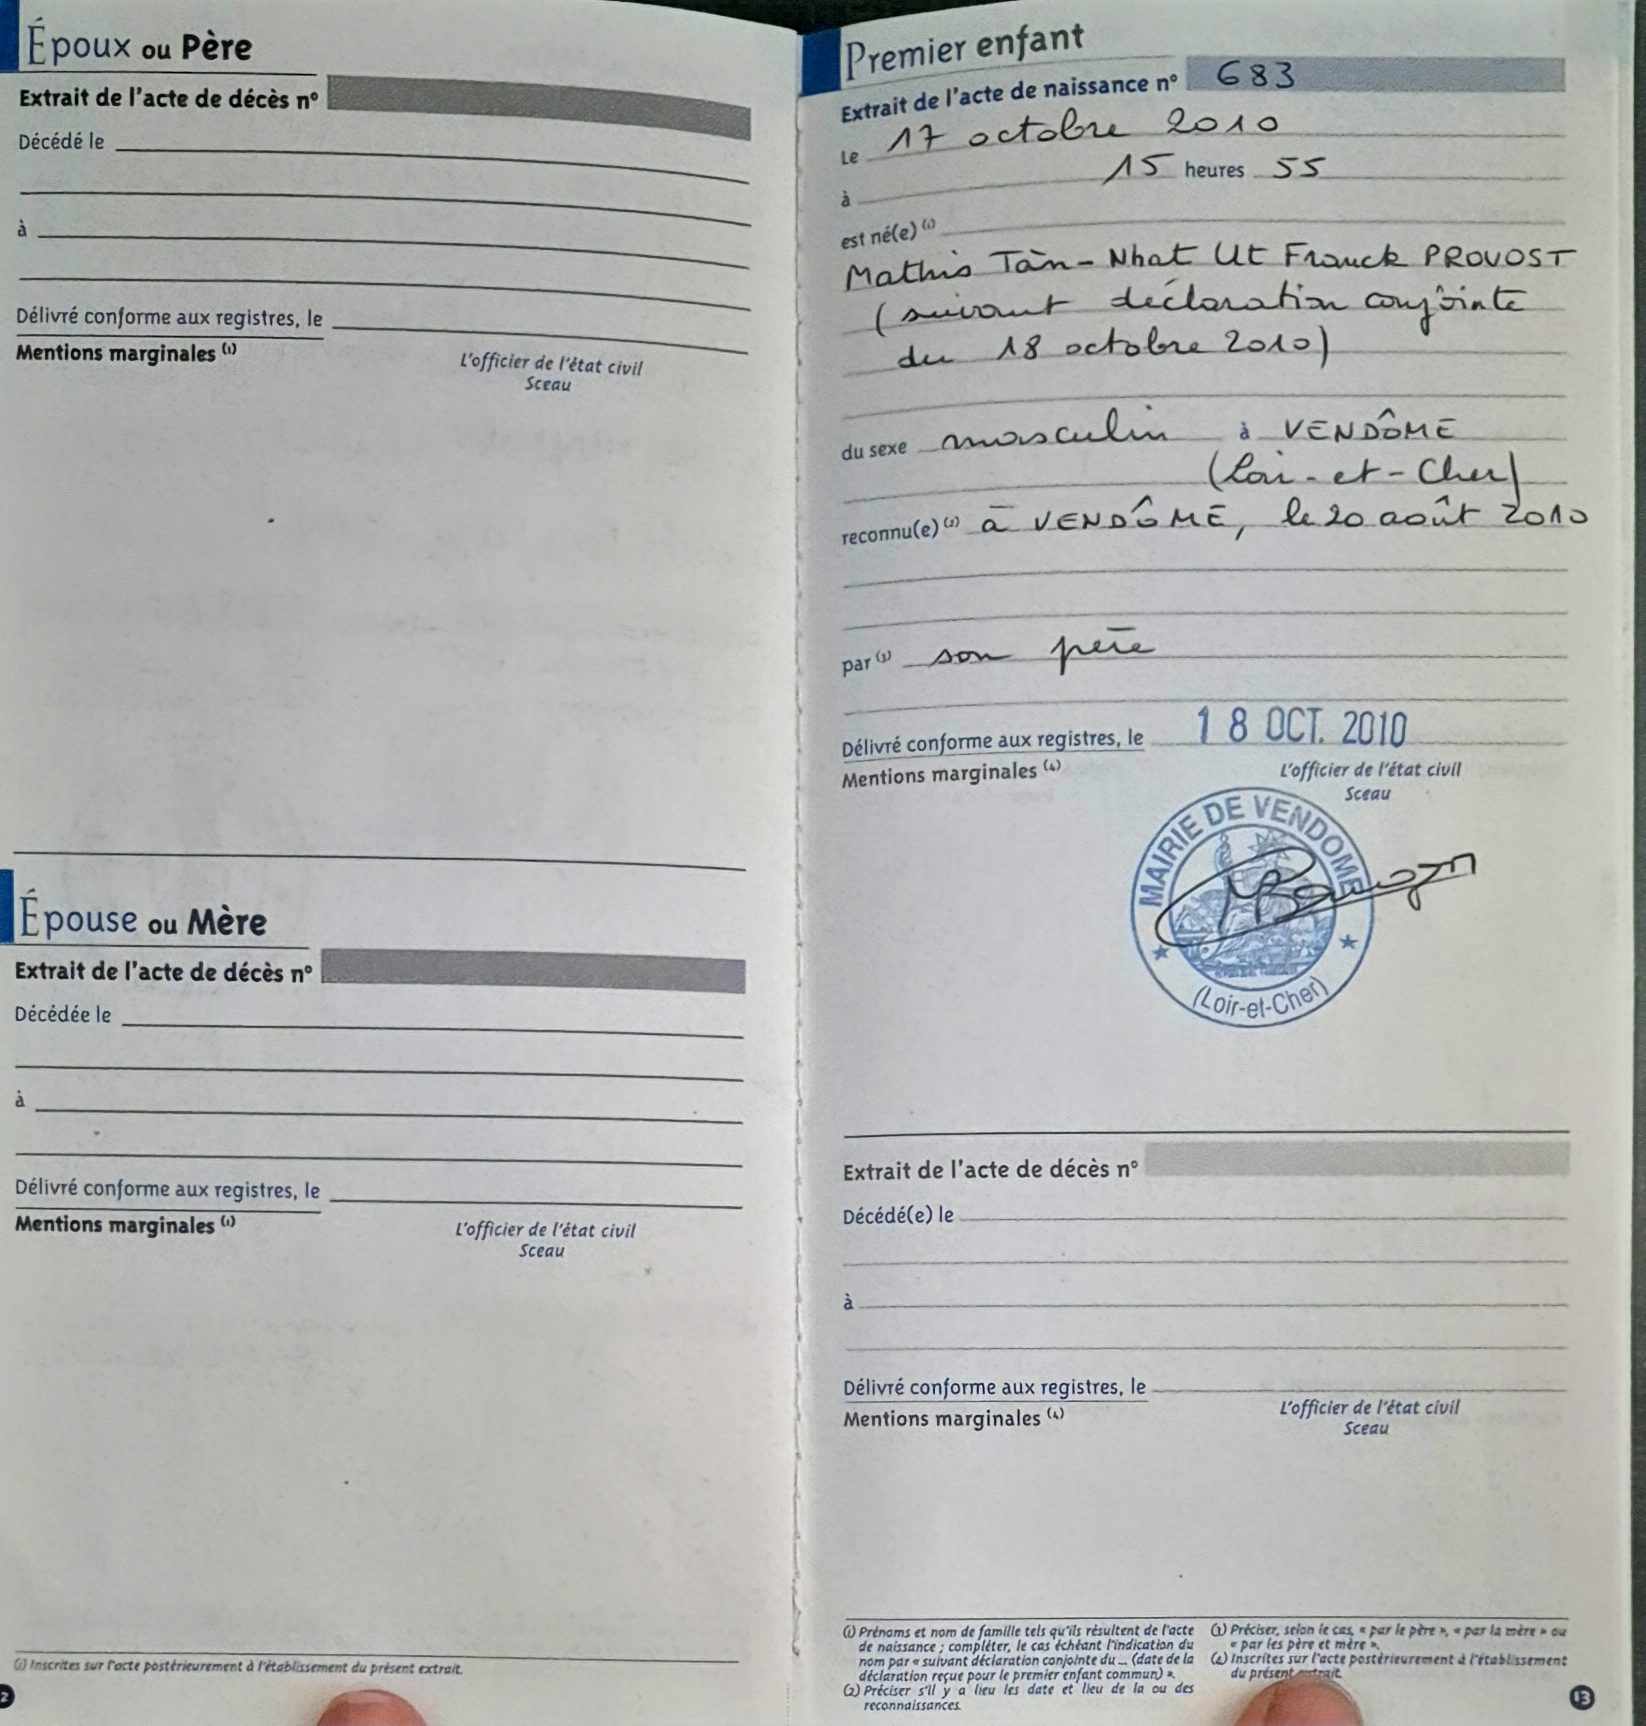 Époux ou Père
Extrait de l'acte de décès n°
Décédé le
à
Délivré conforme aux registres, le
Mentions marginales (1)
L'officier de l'état civil
Sceau
Épouse ou Mère
Extrait de l'acte de décès n°
Décédée le
à
Délivré conforme aux registres, le
Mentions marginales (1)
L'officier de l'état civil
Sceau
(1) Inscrites sur l'acte postérieurement à l'établissement du présent extrait.
2
Premier enfant
Extrait de l'acte de naissance n° 683
Le 17 octobre 2010
à 15 heures 55
est né(e) (1)
Mathis Tàn-Nhat Ut Franck PROVOST
(suivant déclaration conjointe
du 18 octobre 2010)
du sexe masculin à VENDÔME
(Loir-et-Cher)
reconnu(e) (2) à VENDÔME, le 20 août 2010
par (3) son père
Délivré conforme aux registres, le 18 OCT. 2010
Mentions marginales (4)
L'officier de l'état civil
Sceau
MAIRIE DE VENDOME
(Loir-et-Cher)
Extrait de l'acte de décès n°
Décédé(e) le
à
Délivré conforme aux registres, le
Mentions marginales (4)
L'officier de l'état civil
Sceau
(1) Prénoms et nom de famille tels qu'ils résultent de l'acte
de naissance ; compléter, le cas échéant l'indication du
nom par « suivant déclaration conjointe du ... (date de la
déclaration reçue pour le premier enfant commun) ».
(2) Préciser s'il y a lieu les date et lieu de la ou des
reconnaissances.
(3) Préciser, selon le cas, « par le père », « par la mère » ou
« par les père et mère ».
(4) Inscrites sur l'acte postérieurement à l'établissement
du présent extrait.
13